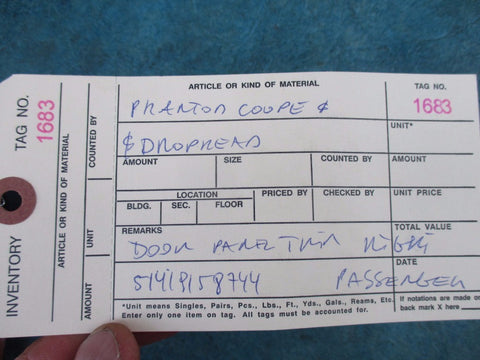 ARTICLE OR KIND OF MATERIAL
TAG NO.
1683
PHANTOM COUPE &
& DROPHEAD
UNIT*
AMOUNT SIZE COUNTED BY AMOUNT
LOCATION PRICED BY CHECKED BY UNIT PRICE
BLDG. SEC. FLOOR
REMARKS TOTAL VALUE
DOOR PANEL TRIM RIGHT
DATE
51419158744 PASSENGER
*Unit means Singles, Pairs, Pcs., Lbs., Ft., Yds., Gals., Reams, Etc.
Enter only one item on tag. All tags must be accounted for.
If notations are made on
back mark X here
INVENTORY
TAG NO.
1683
ARTICLE OR KIND OF MATERIAL
UNIT
COUNTED BY
AMOUNT